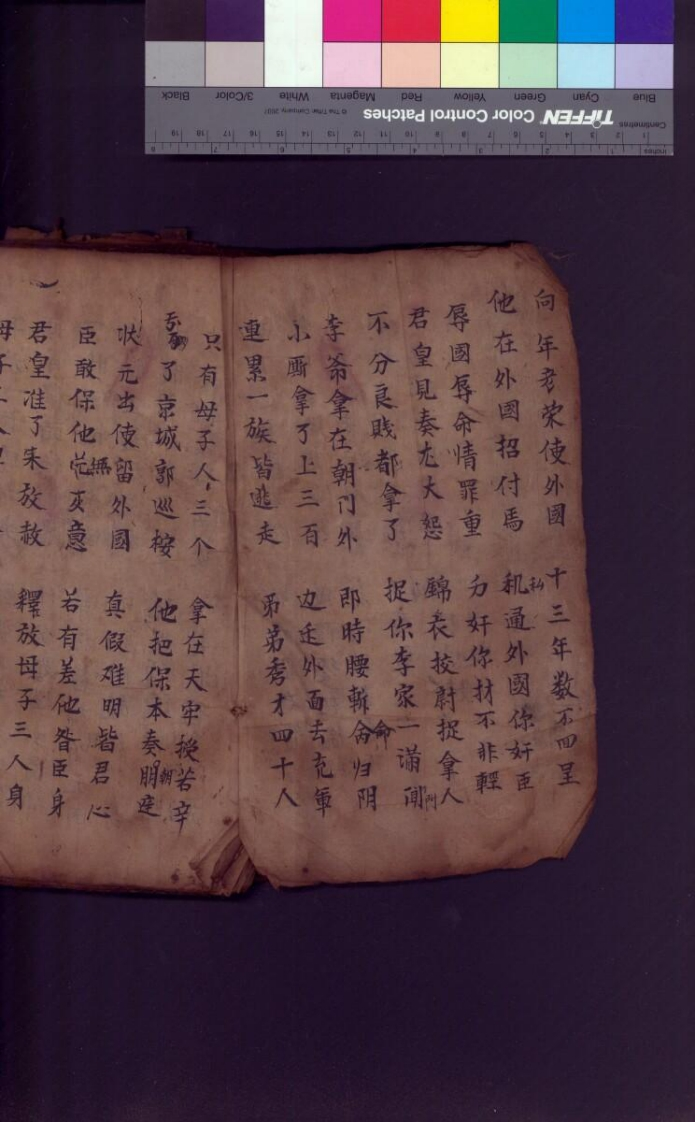 Blue Cyan Green Yellow Red Magenta White 3/Color Black
TIFFEN Color Control Patches © The Tiffen Company, 2007
Centimetres
Inches
向年老荣使外國 十三年数不回呈
他在外國招付馬 私通外國你奸臣
辱國辱命情罪重 力奸你材不非輕
君皇見奏尤大怒 錦衣挍尉捉拿人
不分良贱都拿了 捉你李家一满門
李爺拿在朝门外 即時腰斬命归阴
小厮拿了上三百 边廷外面去充軍
連累一族皆逃走 弟弟秀才四十人
只有母子人三个 拿在天牢授若辛
了京城郭巡桉 他把保本奏朝廷
状元出使留外國 真假难明皆君心
臣敢保他無反意 若有差他咎臣身
君皇准了朱放赦 釋放母子三人身